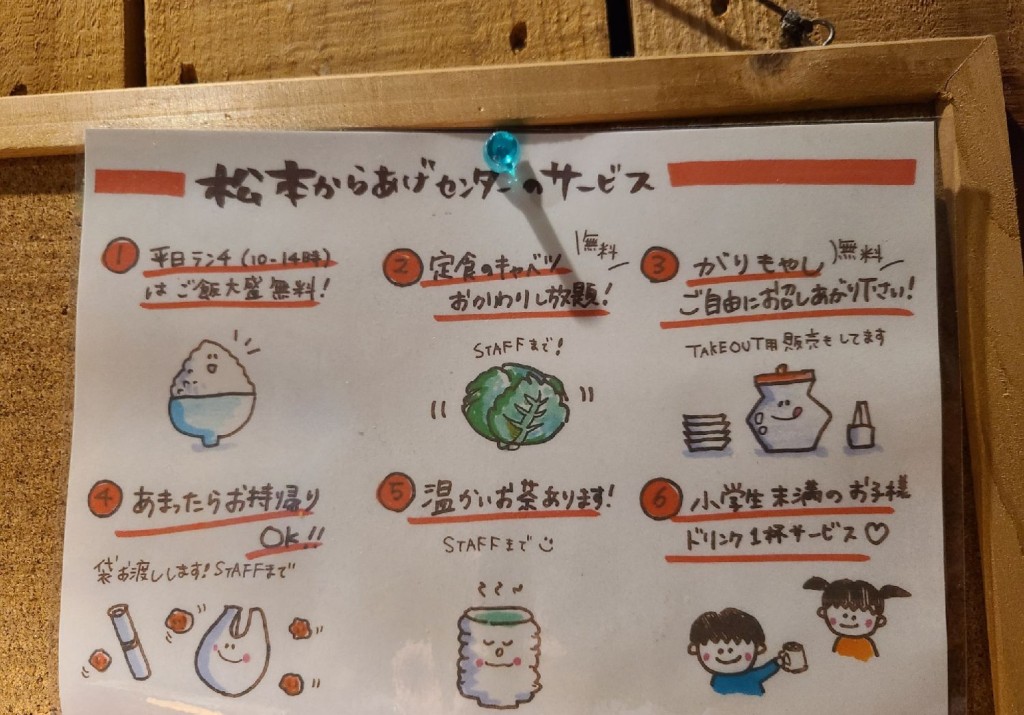 松本からあげセンターのサービス
① 平日ランチ(10-14時)
はご飯大盛無料!
② 定食のキャベツ
無料
おかわりし放題!
STAFFまで!
③ がりもやし
無料
ご自由にお召しあがり下さい!
TAKEOUT用販売もしてます
④ あまったらお持帰り
OK!!
袋お渡しします!STAFFまで
⑤ 温かいお茶あります!
STAFFまで
⑥ 小学生未満のお子様
ドリンク1杯サービス♡